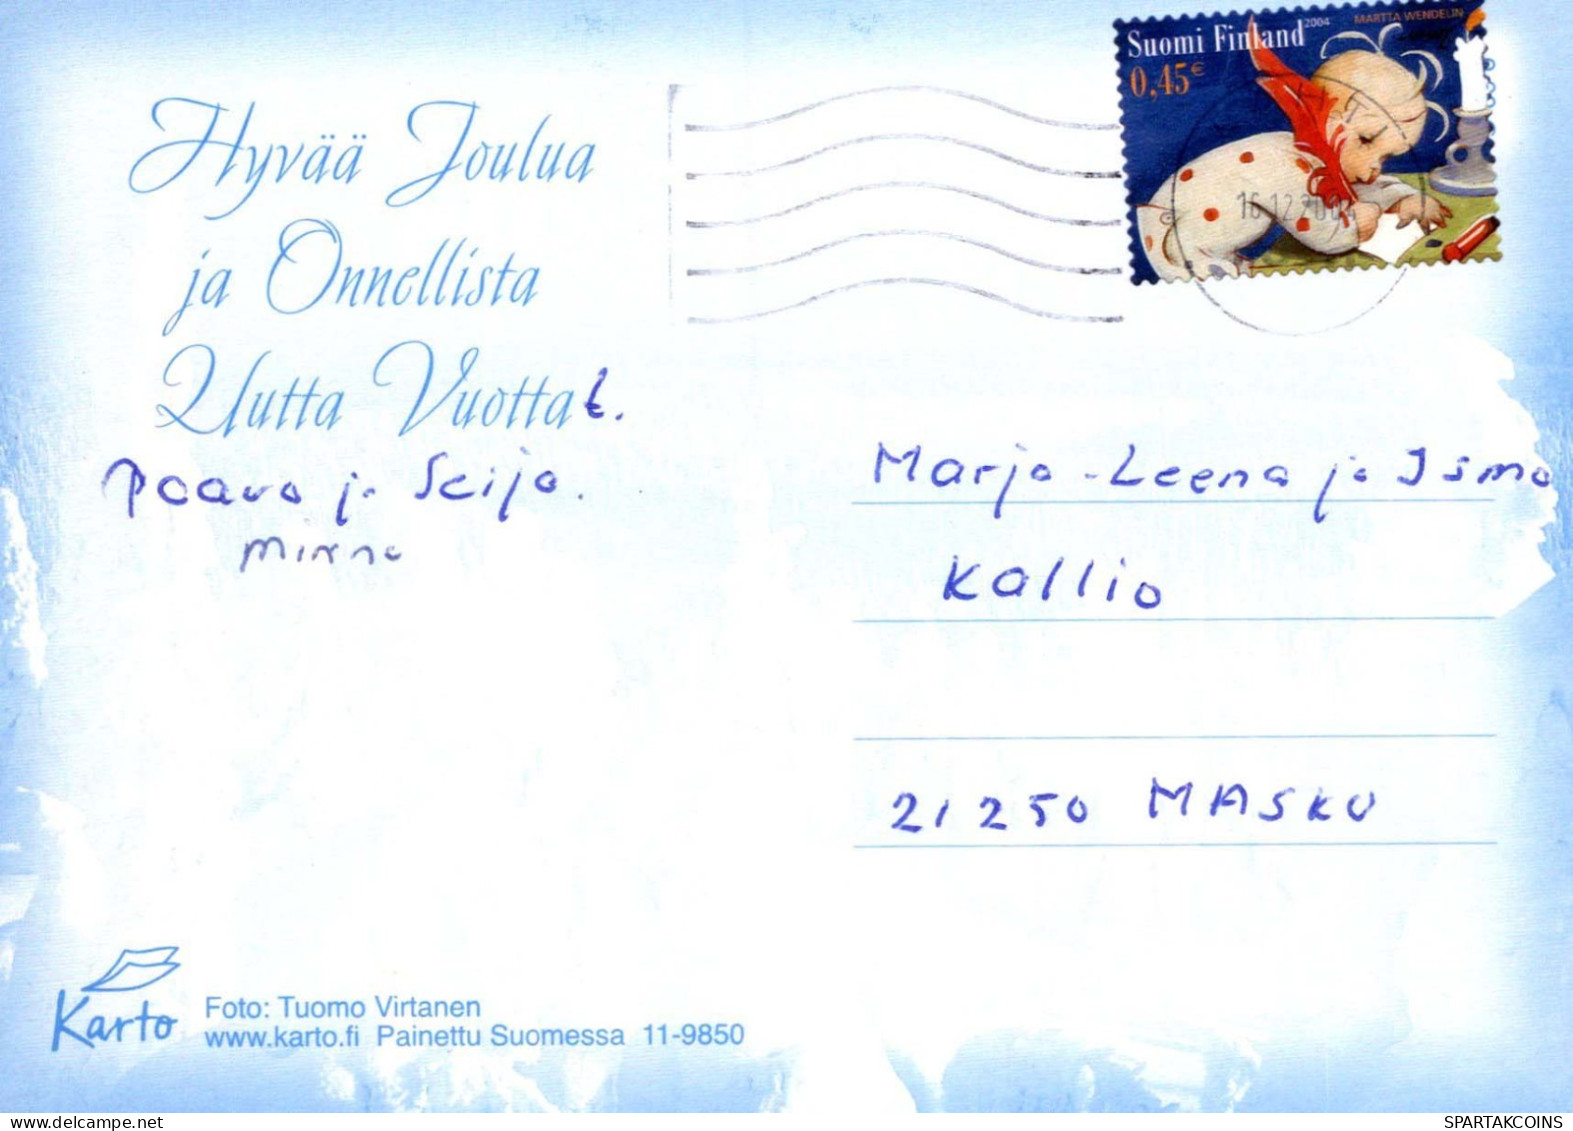 Suomi Finland 2004 MARTTA WENDELIN
0,45€
16.12.2004
Hyvää Joulua
ja Onnellista
Uutta Vuotta t.
Paavo ja Seija.
Minna
Marja-Leena ja Ismo
Kallio
21250 MASKU
Karto
Foto: Tuomo Virtanen
www.karto.fi Painettu Suomessa 11-9850
SPARTAKCOINS